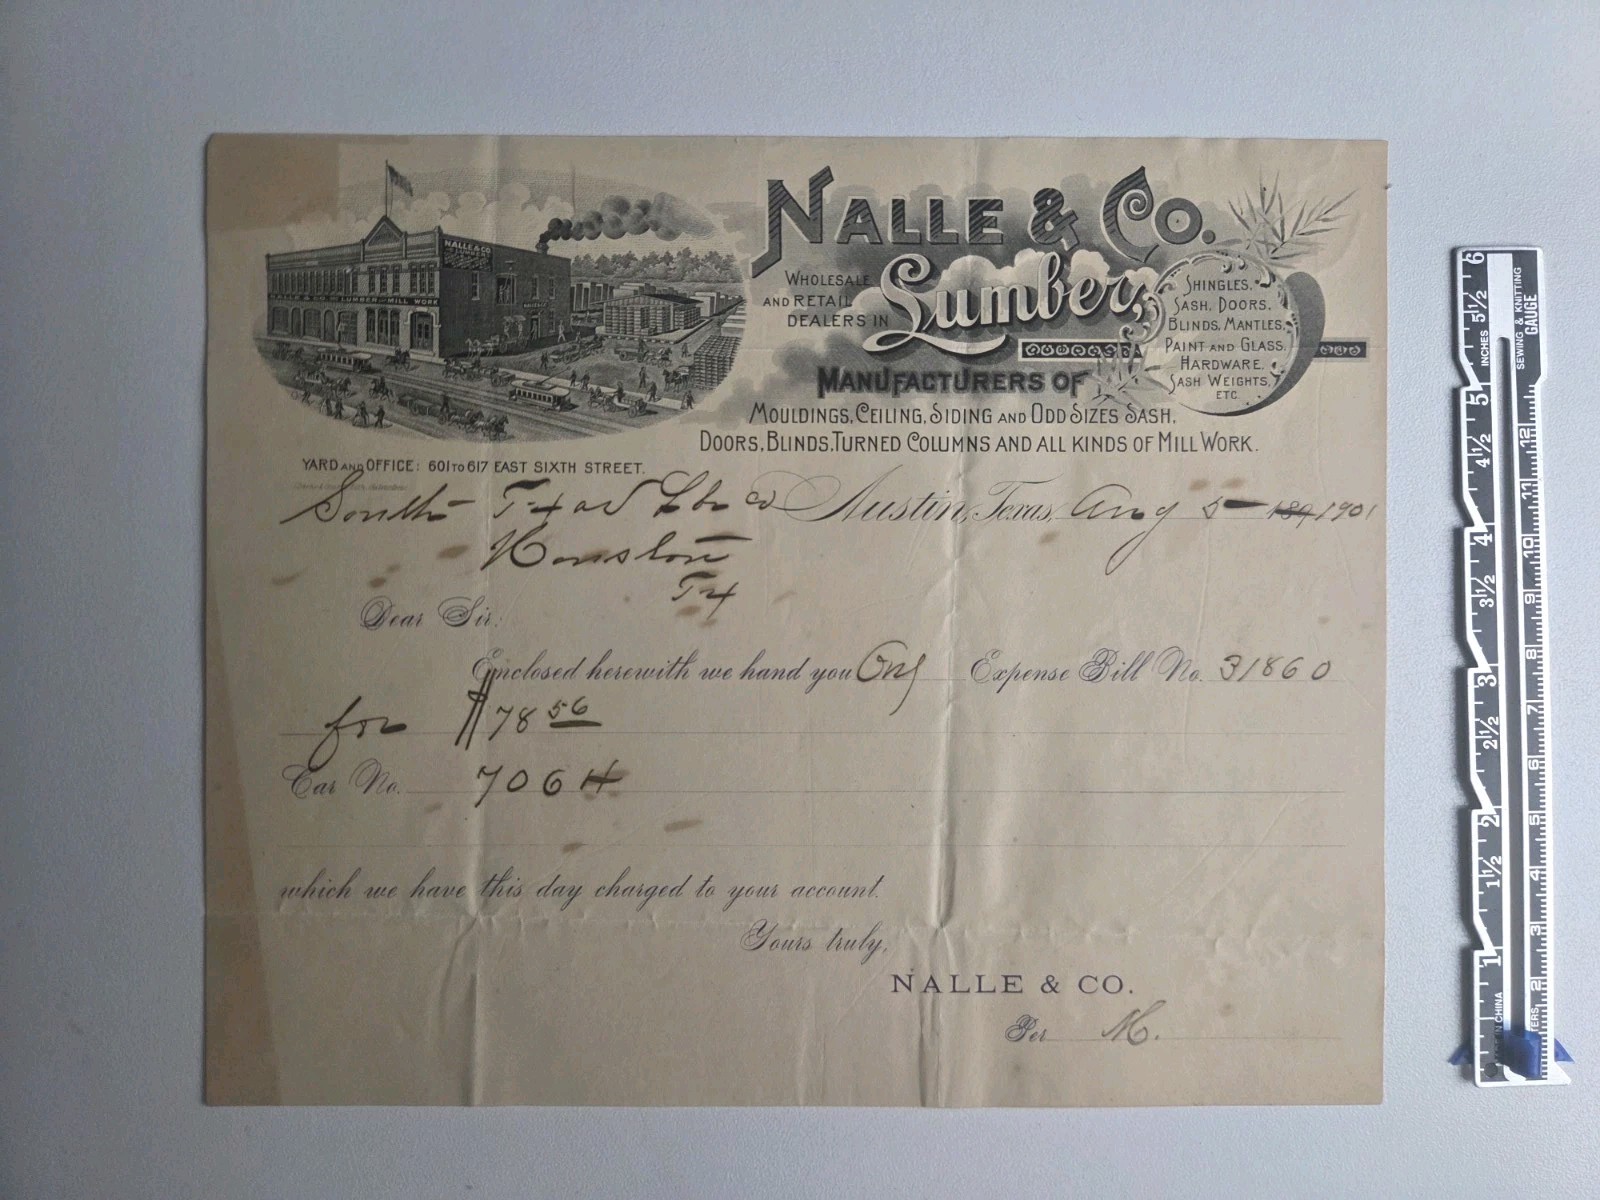 NALLE & CO.
WHOLESALE
AND RETAIL
DEALERS IN
Lumber,
SHINGLES.
SASH, DOORS.
BLINDS, MANTLES.
PAINT AND GLASS.
HARDWARE.
SASH WEIGHTS,
ETC.
MANUFACTURERS OF
MOULDINGS, CEILING, SIDING AND ODD SIZES SASH,
DOORS, BLINDS, TURNED COLUMNS AND ALL KINDS OF MILL WORK.
NALLE & CO.
NALLE & CO. LUMBER AND MILL WORK
YARD AND OFFICE: 601 TO 617 EAST SIXTH STREET.
South Tex Lbr Co Austin, Texas, Aug 5 189 1901
Houston
Tx
Dear Sir:
Enclosed herewith we hand you One Expense Bill No. 31860
for $78 56
Car No. 7064
which we have this day charged to your account.
Yours truly,
NALLE & CO.
Per M.
6
5 1/2
5
4 1/2
4
3 1/2
3
2 1/2
2
1 1/2
1
INCHES
SEWING & KNITTING
GAUGE
12
11
10
9
8
7
6
5
4
3
2
IN CHINA